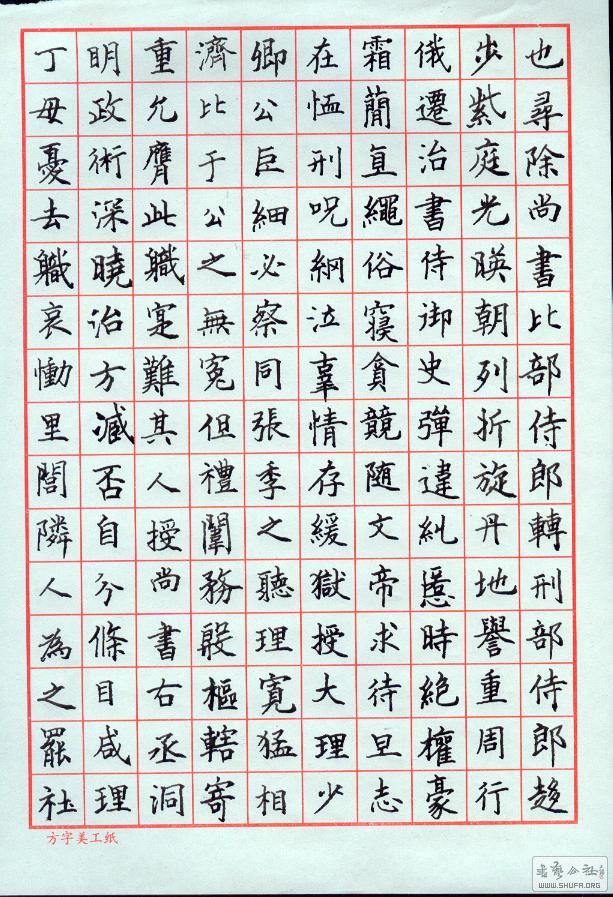 也尋除尚書比部侍郎轉刑部侍郎趍
步紫庭光暎朝列折旋丹地譽重周行
俄遷治書侍御史彈違糺慝時絕權豪
霜簡直繩俗寢貪競随文帝求待旦志
在恤刑呪網泣辜情存緩獄授大理少
卿公臣細必察同張季之聽理寬猛相
濟比于公之無冤但禮闈務殷樞轄寄
重允膺此職寔難其人授尚書右丞洞
明政術深曉治方臧否自分條目咸理
丁母憂去職哀慟里閭隣人為之罷社
方字美工纸
WWW.SHUFA.ORG